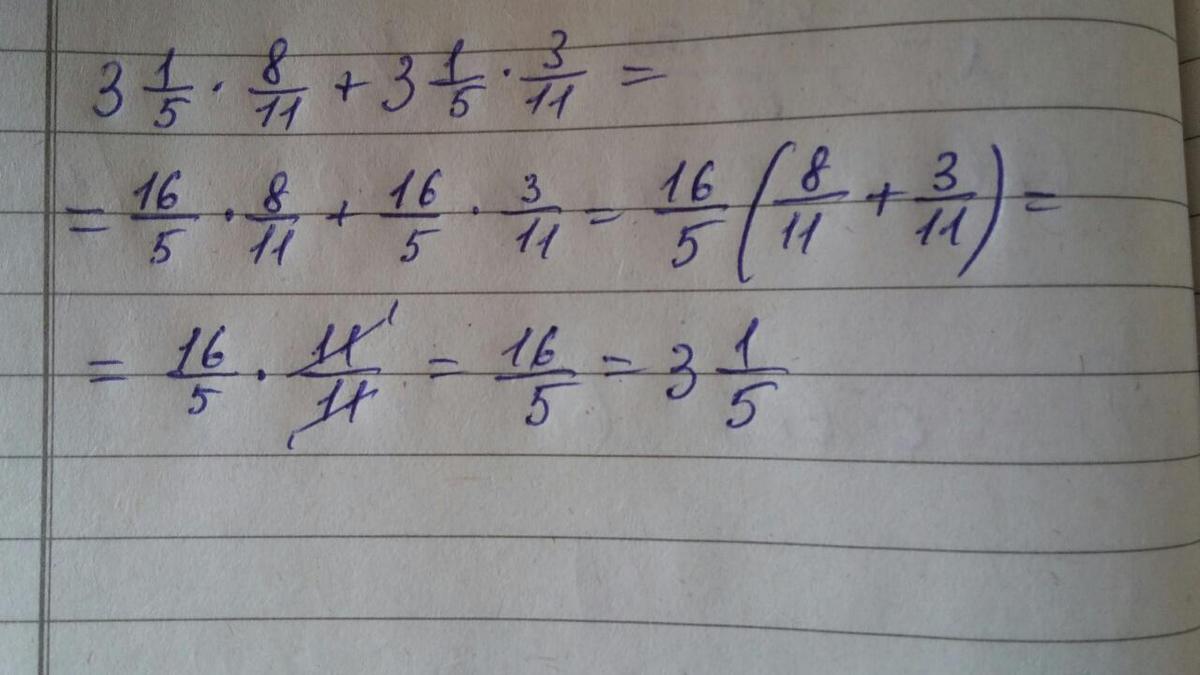 3 1/5 · 8/11 + 3 1/5 · 3/11 =
= 16/5 · 8/11 + 16/5 · 3/11 = 16/5 (8/11 + 3/11) =
= 16/5 · 11/11 = 16/5 = 3 1/5